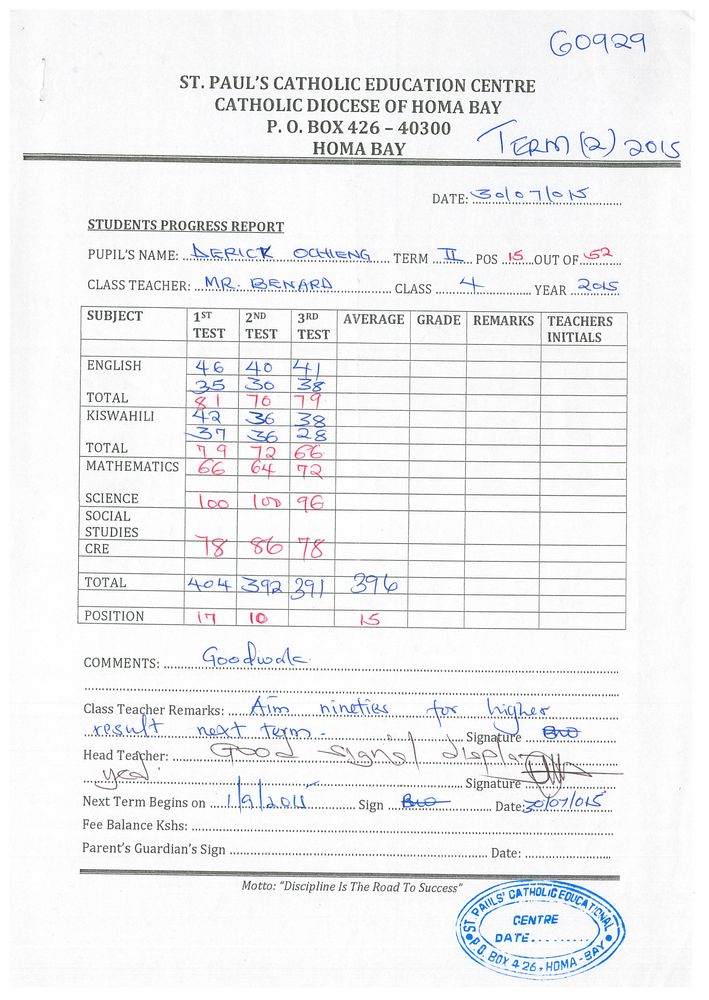 G0929
ST. PAUL'S CATHOLIC EDUCATION CENTRE
CATHOLIC DIOCESE OF HOMA BAY
P. O. BOX 426 – 40300
HOMA BAY
TERM (2) 2015
DATE: 30/07/015
STUDENTS PROGRESS REPORT
PUPIL'S NAME: DERICK OCHIENG TERM II POS 15 OUT OF 52
CLASS TEACHER: MR. BENARD CLASS 4 YEAR 2015
SUBJECT 1ST TEST 2ND TEST 3RD TEST AVERAGE GRADE REMARKS TEACHERS INITIALS
ENGLISH 46 40 41
35 30 38
TOTAL 81 70 79
KISWAHILI 42 36 38
37 36 28
TOTAL 79 72 66
MATHEMATICS 66 64 72
SCIENCE 100 100 96
SOCIAL
STUDIES
CRE 78 86 78
TOTAL 404 392 391 396
POSITION 17 10 15
COMMENTS: Goodwork
Class Teacher Remarks: Aim nineties for higher
result next term. Signature
Head Teacher: Good signs/ displa
yed. Signature
Next Term Begins on 1/9/2015 Sign Date: 30/07/015
Fee Balance Kshs:
Parent's Guardian's Sign Date:
Motto: "Discipline Is The Road To Success"
ST PAULS' CATHOLIC EDUCATIONAL
CENTRE
DATE
P.O. BOX 426, HOMA-BAY